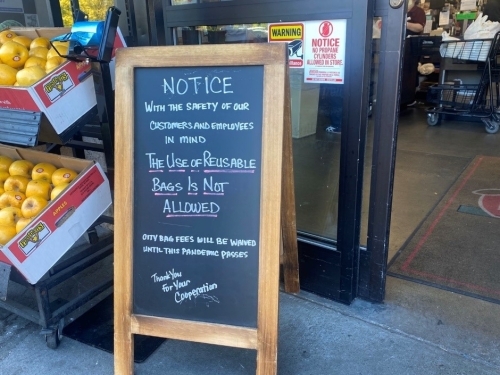 NOTICE
WITH THE SAFETY OF OUR
CUSTOMERS AND EMPLOYEES
IN MIND
THE USE OF REUSABLE
BAGS IS NOT
ALLOWED
CITY BAG FEES WILL BE WAIVED
UNTIL THIS PANDEMIC PASSES
Thank You
For Your
Cooperation
WARNING
NOTICE
NO PROPANE
CYLINDERS
ALLOWED IN
STORE
APPLES